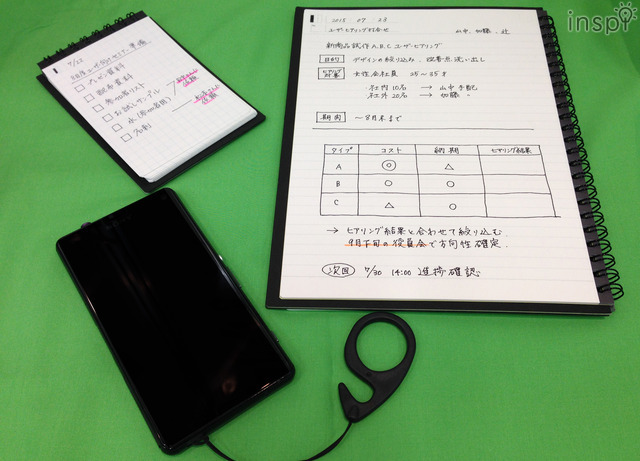 inspi
7/22
プレゼン資料
配布資料
参加者リスト
お試しサンプル
水(参加者用)
名刺
2015 07 23
ユーザヒアリング打合せ
山中、加藤、辻
新商品試作A,B,C ユーザーヒアリング
目的 デザインの絞り込み、改善点洗い出し
ヒアリング対象 女性会社員 25~35才
社内10名 → 山中手配
社外20名 → 加藤 〃
期間 ~8月末まで
タイプ コスト 納期 ヒアリング結果
A ◎ △
B ○ ○
C △ ○
→ ヒアリング結果と合わせて絞り込む
9月下旬の役員会で方向性確定
次回 7/30 14:00 進捗確認